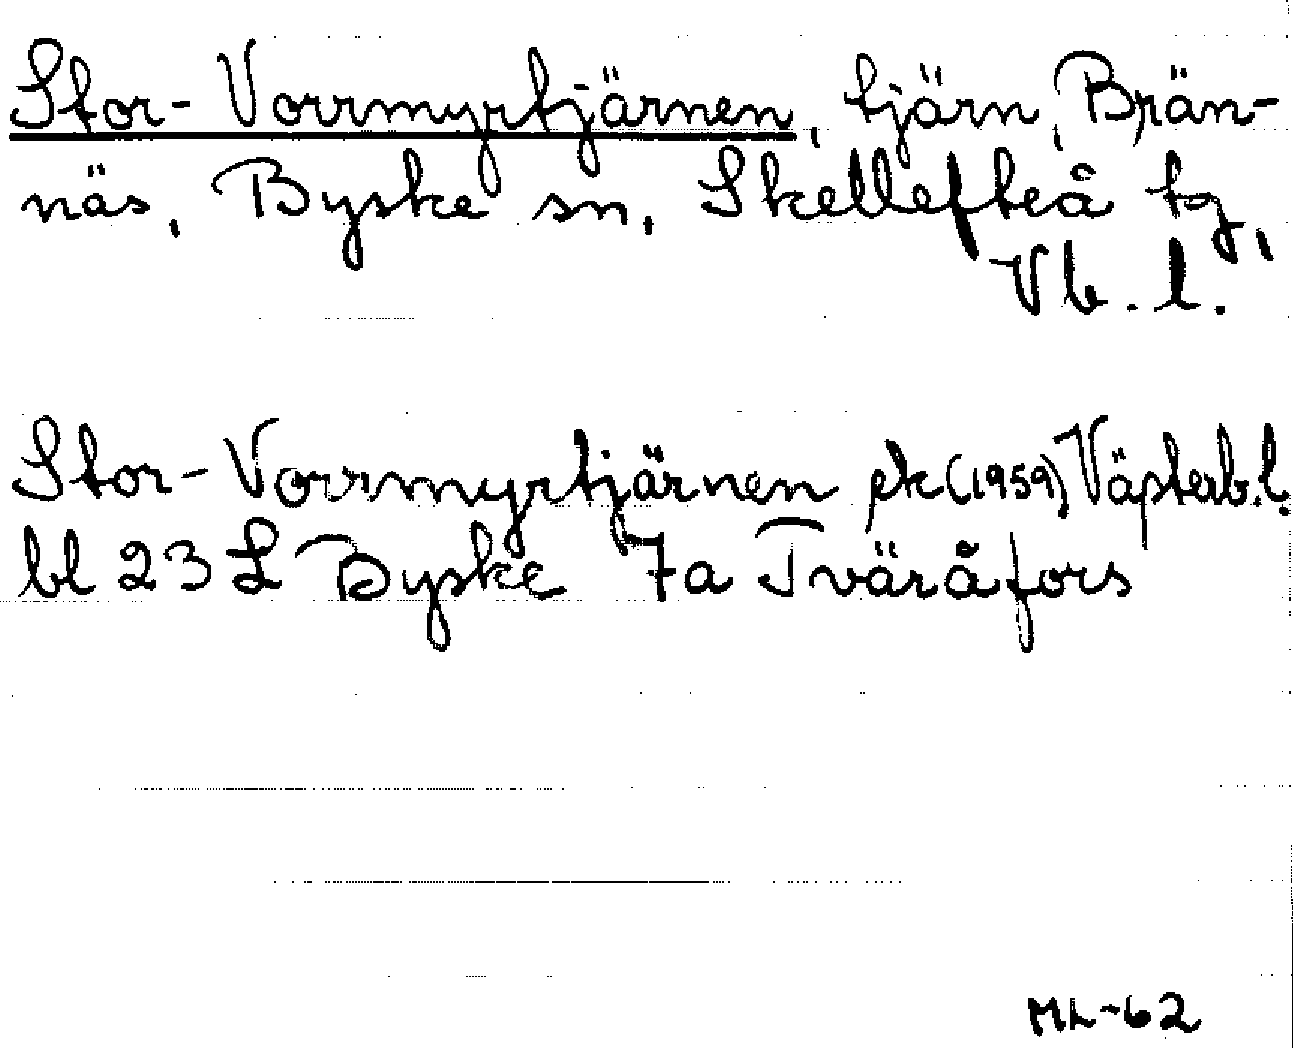 Stor-Vorrmyrtjärnen, tjärn, Brän-
näs, Byske sn, Skellefteå tg,
Vb. l.
Stor-Vorrmyrtjärnen ek (1959), Västerb. l.
bl 23 L Byske 7a Tväråfors
ML-62